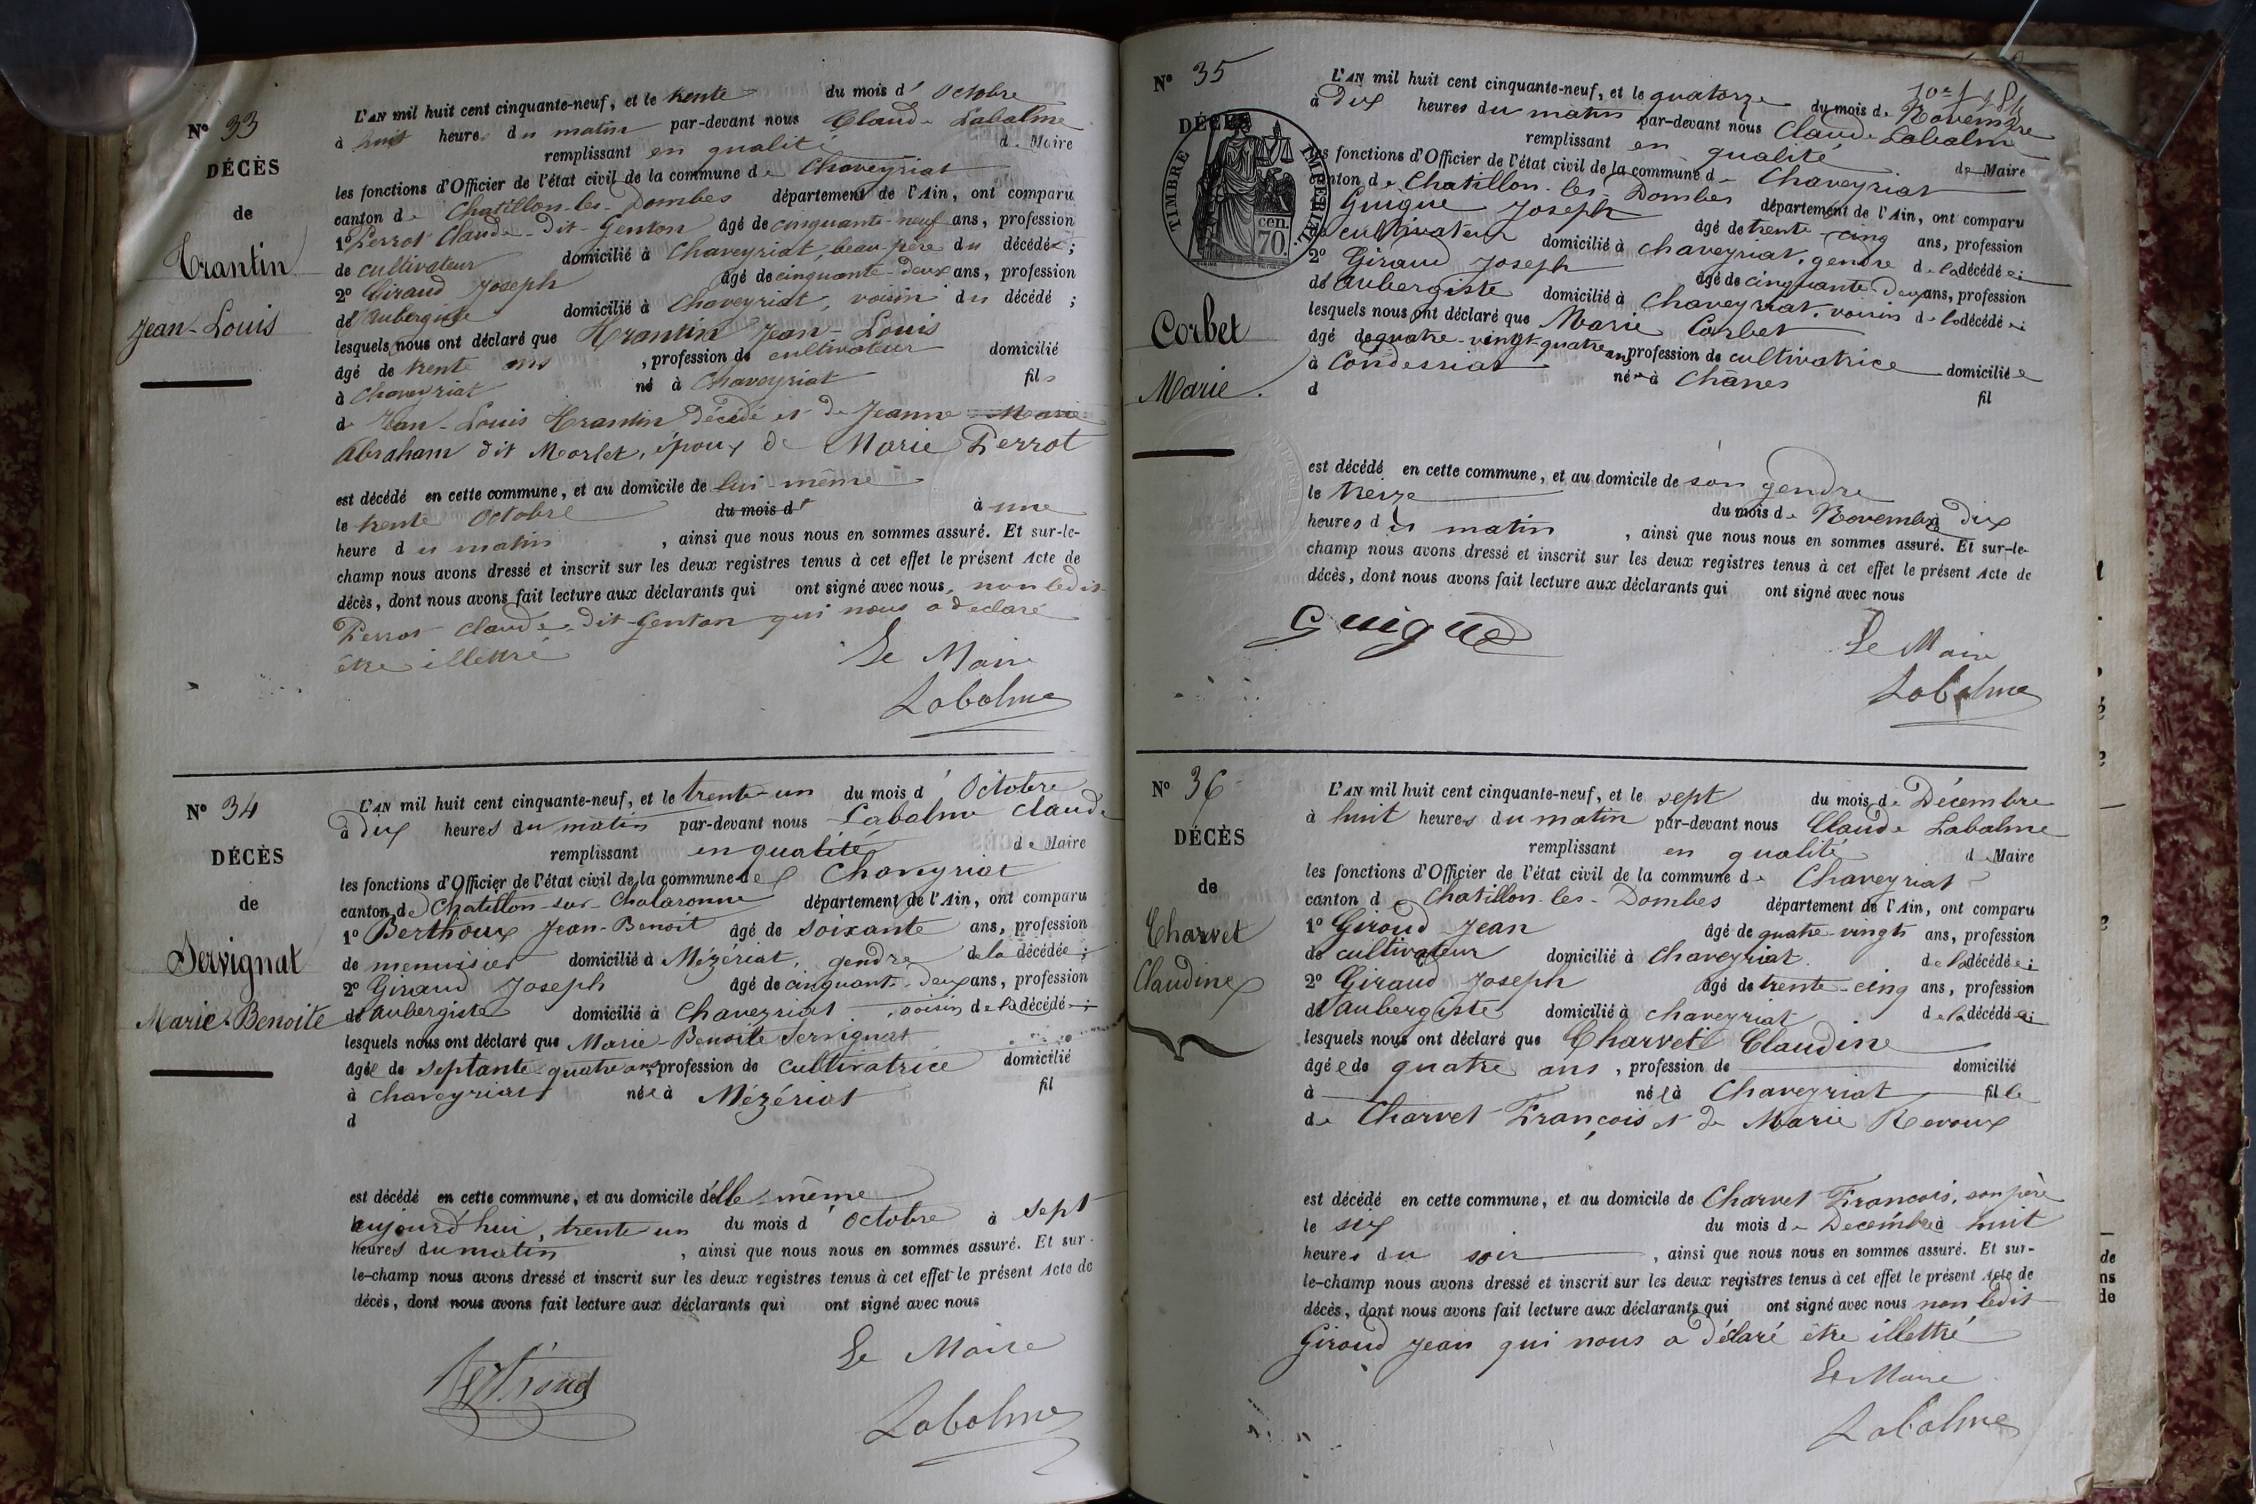 N° 33
DÉCÈS
de
Trantin
Jean-Louis
L'AN mil huit cent cinquante-neuf, et le trente du mois d' Octobre
à huit heures du matin par-devant nous Claude Labalme
remplissant en qualité de Maire
les fonctions d'Officier de l'état civil de la commune de Chaveyriat
canton de Chatillon-les-Dombes département de l'Ain, ont comparu
1° Perrot Claude-dit-Genton âgé de cinquante-neuf ans, profession
de cultivateur domicilié à Chaveyriat, beau-père du décédé ;
2° Giraud Joseph âgé de cinquante-deux ans, profession
d'aubergiste domicilié à Chaveyriat, voisin du décédé ;
lesquels nous ont déclaré que Trantin Jean-Louis
âgé de trente ans , profession de cultivateur domicilié
à Chaveyriat né à Chaveyriat fils
de Jean-Louis Trantin décédé et de Jeanne Marie
Abraham dit Morlet, époux de Marie Perrot
est décédé en cette commune, et au domicile de lui-même
le trente Octobre du mois d' à une
heure du matin , ainsi que nous nous en sommes assuré. Et sur-le-
champ nous avons dressé et inscrit sur les deux registres tenus à cet effet le présent Acte de
décès, dont nous avons fait lecture aux déclarants qui ont signé avec nous, non ledit
Perrot Claude-dit-Genton qui nous a déclaré
être illettré
Le Maire
Labalme
N° 34
DÉCÈS
de
Servignat
Marie-Benoite
L'AN mil huit cent cinquante-neuf, et le trente-un du mois d' Octobre
à dix heures du matin par-devant nous Labalme Claude
remplissant en qualité de Maire
les fonctions d'Officier de l'état civil de la commune de Chaveyriat
canton de Chatillon-sur-Chalaronne département de l'Ain, ont comparu
1° Berthoux Jean-Benoit âgé de soixante ans, profession
de menuisier domicilié à Mézériat, gendre de la décédée ;
2° Giraud Joseph âgé de cinquante-deux ans, profession
d'aubergiste domicilié à Chaveyriat, voisin de la décédée ;
lesquels nous ont déclaré que Marie-Benoite Servignat
âgée de septante-quatre ans, profession de cultivatrice domicilié
à Chaveyriat née à Mézériat fil
d
est décédé en cette commune, et au domicile d'elle-même
aujourd'hui, trente un du mois d' Octobre à sept
heures du matin , ainsi que nous nous en sommes assuré. Et sur-
le-champ nous avons dressé et inscrit sur les deux registres tenus à cet effet le présent Acte de
décès, dont nous avons fait lecture aux déclarants qui ont signé avec nous
Le Maire
Labalme
N° 35
DÉCÈS
TIMBRE IMPÉRIAL
70 cen.
Corbet
Marie
L'AN mil huit cent cinquante-neuf, et le quatorze du mois de Novembre
à dix heures du matin par-devant nous Claude Labalme
remplissant en qualité de Maire
les fonctions d'Officier de l'état civil de la commune de Chaveyriat
canton de Chatillon-les-Dombes département de l'Ain, ont comparu
Guigue Joseph âgé de trente-cinq ans, profession
de cultivateur domicilié à Chaveyriat, gendre de la décédée ;
2° Giraud Joseph âgé de cinquante-deux ans, profession
d'aubergiste domicilié à Chaveyriat, voisin de la décédée ;
lesquels nous ont déclaré que Marie Corbet
âgé de quatre-vingt-quatre ans profession de cultivatrice domiciliée
à Condessiat née à Chânes
d fil
est décédé en cette commune, et au domicile de son gendre
le treize du mois de Novembre à dix
heures du matin , ainsi que nous nous en sommes assuré. Et sur-le-
champ nous avons dressé et inscrit sur les deux registres tenus à cet effet le présent Acte de
décès, dont nous avons fait lecture aux déclarants qui ont signé avec nous
Guigue
Le Maire
Labalme
N° 36
DÉCÈS
de
Charvet
Claudine
L'AN mil huit cent cinquante-neuf, et le sept du mois de Décembre
à huit heures du matin par-devant nous Claude Labalme
remplissant en qualité de Maire
les fonctions d'Officier de l'état civil de la commune de Chaveyriat
canton d Chatillon-les-Dombes département de l'Ain, ont comparu
1° Giroud Jean âgé de quatre-vingts ans, profession
de cultivateur domicilié à Chaveyriat. de la décédée ;
2° Giraud Joseph âgé de trente-cinq ans, profession
d'aubergiste domicilié à Chaveyriat de la décédée ;
lesquels nous ont déclaré que Charvet Claudine
âgée de quatre ans , profession de domicilié
à née à Chaveyriat fille
de Charvet François et de Marie Revoux
est décédé en cette commune, et au domicile de Charvet François, son père
le six du mois de Décembre à huit
heures du soir , ainsi que nous nous en sommes assuré. Et sur-
le-champ nous avons dressé et inscrit sur les deux registres tenus à cet effet le présent Acte de
décès, dont nous avons fait lecture aux déclarants qui ont signé avec nous non ledit
Giroud Jean qui nous a déclaré être illettré
Le Maire
Labalme